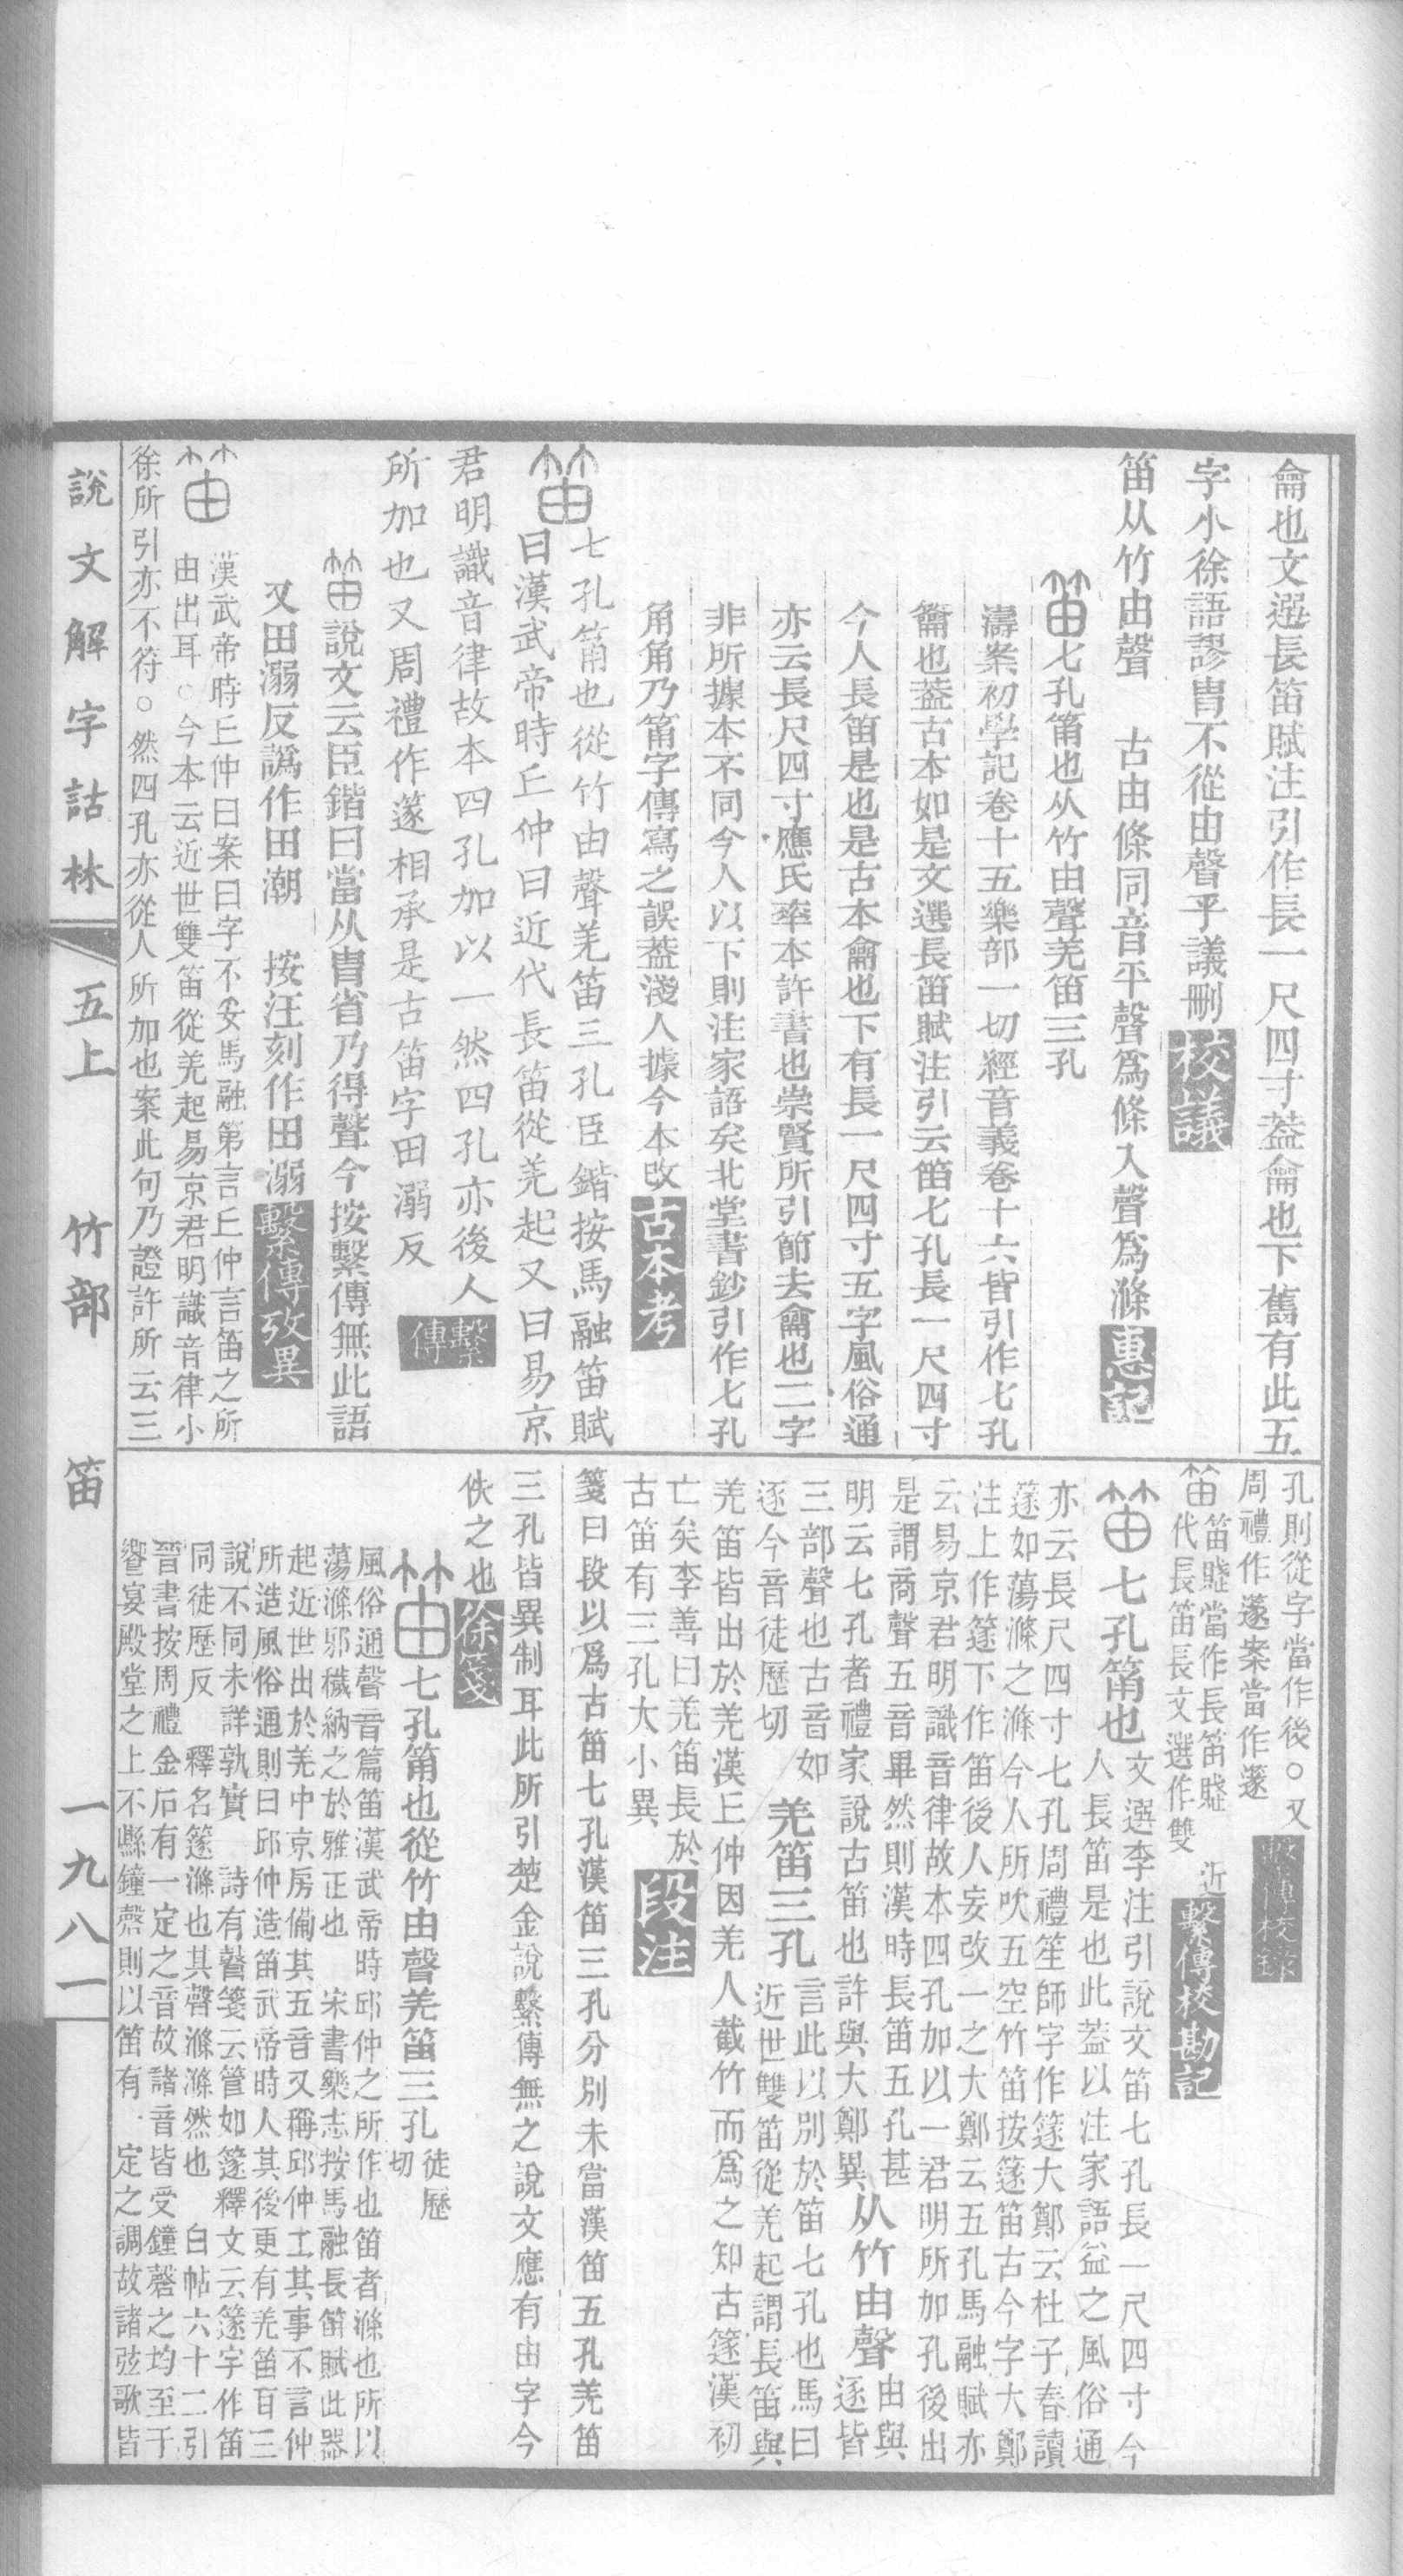 龠也文選長笛賦注引作長一尺四寸葢龠也下舊有此五
字小徐語謬冑不從由聲乎議刪 校議
笛从竹由聲　古由條同音平聲爲條入聲爲滌 惠記
笛七孔筩也从竹由聲羌笛三孔
濤案初學記卷十五樂部一切經音義卷十六皆引作七孔
籥也葢古本如是文選長笛賦注引云笛七孔長一尺四寸
今人長笛是也是古本龠也下有長一尺四寸五字風俗通
亦云長尺四寸應氏率本許書也崇賢所引節去龠也二字
非所據本不同今人以下則注家語矣北堂書鈔引作七孔
角角乃筩字傳寫之誤葢淺人據今本改 古本考
笛七孔筩也從竹由聲羌笛三孔臣鍇按馬融笛賦
曰漢武帝時丘仲曰近代長笛從羌起又曰易京
君明識音律故本四孔加以一然四孔亦後人
所加也又周禮作篴相承是古笛字田溺反 繫傳
笛說文云臣鍇曰當从冑省乃得聲今按繫傳無此語
又田溺反譌作田潮　按汪刻作田溺 繫傳攷異
笛漢武帝時丘仲曰案曰字不妥馬融第言丘仲言笛之所
由出耳○今本云近世雙笛從羌起易京君明識音律小
徐所引亦不符○然四孔亦從人所加也案此句乃證許所云三
孔則從字當作後○又
周禮作篴案當作篴 繫傳校錄
笛笛賤當作長笛賤　近
代長笛長文選作雙 繫傳校勘記
笛七孔筩也文選李注引說文笛七孔長一尺四寸今
人長笛是也此葢以注家語益之風俗通
亦云長尺四寸七孔周禮笙師字作篴大鄭云杜子春讀
篴如蕩滌之滌今人所吹五空竹笛按篴笛古今字大鄭
注上作篴下作笛後人妄改一之大鄭云五孔馬融賦亦
云易京君明識音律故本四孔加以一君明所加孔後出
是謂商聲五音畢然則漢時長笛五孔甚
明云七孔者禮家說古笛也許與大鄭異从竹由聲由與
三部聲也古音如逐皆
逐今音徒歷切羌笛三孔言此以別於笛七孔也馬曰
近世雙笛從羌起謂長笛與
羌笛皆出於羌漢丘仲因羌人截竹而爲之知古篴漢初
亡矣李善曰羌笛長於
古笛有三孔大小異 段注
箋曰段以爲古笛七孔漢笛三孔分別未當漢笛五孔羌笛
三孔皆異制耳此所引楚金說繫傳無之說文應有由字今
佚之也 徐箋
笛七孔筩也從竹由聲羌笛三孔徒歷切
風俗通聲音篇笛漢武帝時邱仲之所作也笛者滌也所以
蕩滌邪穢納之於雅正也　宋書樂志按馬融長笛賦此器
起近世出於羌中京房備其五音又稱邱仲工其事不言仲
所造風俗通則曰邱仲造笛武帝時人其後更有羌笛百三
說不同未詳孰實　詩有瞽箋云管如篴釋文云篴字作笛
同徒歷反　釋名篴滌也其聲滌滌然也　白帖六十二引
晉書按周禮金石有一定之音故諸音皆受鐘磬之均至于
饗宴殿堂之上不縣鐘磬則以笛有一定之調故諸弦歌皆
說文解字詁林　五上　竹部　笛　一九八一